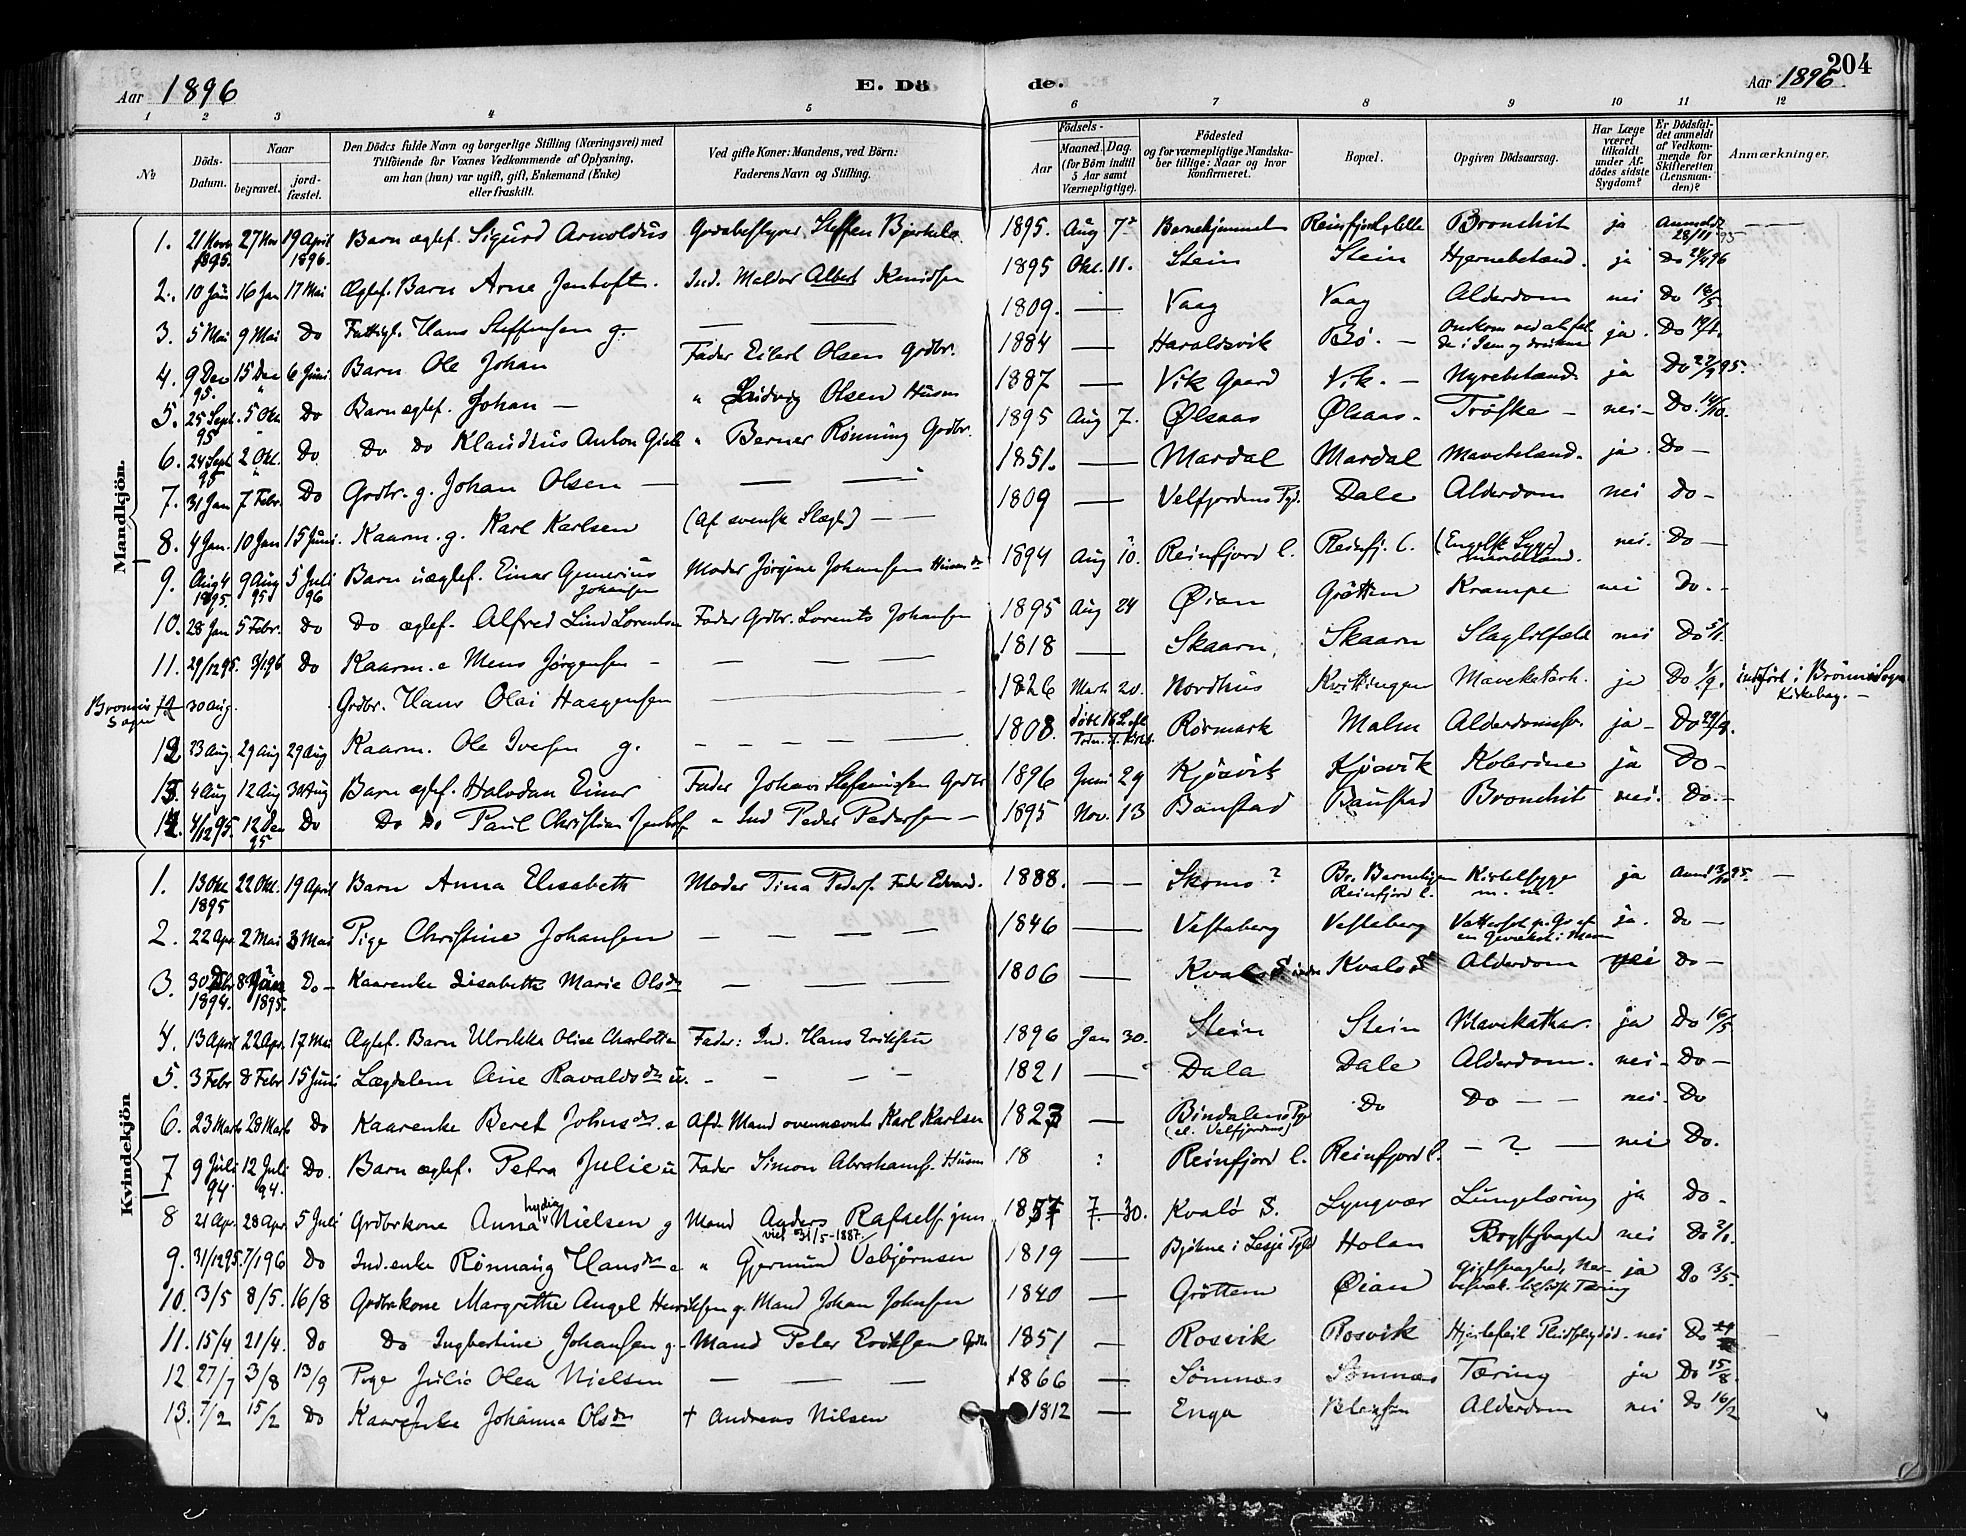 Aar 1896
E. Dö
de.
Aar 1896
204
1 2 3 4 5 6 7 8 9 10 11 12
No
Döds-Datum.
Naar
begravet.
jord-fæstet.
Den Dödes fulde Navn og borgerlige Stilling (Næringsvei) med
Tilföiende for Voxnes Vedkommende af Oplysning,
om han (hun) var ugift, gift, Enkemand (Enke)
eller fraskilt.
Ved gifte Koner: Mandens, ved Börn:
Faderens Navn og Stilling.
Födsels-
Aar
Maaned. Dag.
(for Börn indtil
5 Aar samt
Værnepligtige).
Födested
og for værnepligtige Mandska-
ber tillige: Naar og hvor
konfirmeret.
Bopæl.
Opgiven Dödsaarsag.
Har Læge
været
tilkaldt
under Af-
dödes sidste
Sygdom?
Er Dödsfal-
det anmeldt
af Vedkom-
mende for
Skifteretten
(Lensman-
den)?
Anmærkninger.
Mandkjön.
1. 21 Nov 1895. 27 Nov 19 April 1896. Barn ægtef. Sigurd Arnoldus Steffen 1895. Aug 7 Bronchit ja Anmeldt 28/11 95
2. 10 Jan 16 Jan 17 Mai Ægtef. Barn Arne Jentoft Ind. Albert 1895 Okt. 11. Stein Stein ja Do
3. 5 Mai 9 Mai Do Hans Steffensen g. 1809. Vaag Vaag Alderdom nei Do 18/5
4. 9 Dec 95. 15 Dec 6 Juni Barn Ole Johan Fader Eilert Olsen Grdbr. 1884 Haraldsvik Bö. ja. Do
5. 25 Sept. 95 5 Okt Do Barn ægtef. Johan " Ludvig Olsen Husm 1887 Vik Gaard Vik. ja Do
6. 24 Sept 95 2 Okt. Do Do Do Klaudius Anton " Berner Rönning Grdbr. 1895 Aug 7. Ølsaas Ølsaas Tröske nei Do. 14/10.
7. 31 Jan 7 Febr. Do Grdbr. g. Johan Olsen 1851. Mardal Mardal ja. Do
8. 4 Jan. 10 Jan 15 Juni. Kaarm. g. Karl Karlsen (Af svensk Slægt) 1809 Velfjordens Pgd. Dale Alderdom nei Do
9. Aug 4 1895. 9 Aug 95 5 Juli 96 Barn uægtef. Einar Johansen Moder Jörgine Johansen 1894 Aug 10. Reinfjord l. Reinfj. l. (Engelsk Syge) nei. Do
10. 28 Jan 5 Febr. Do Do ægtef. Alfred Lind Lorentsen Fader Grdbr. Lorents Johansen 1895 Aug 24 Øian Gröttem Krampe nei Do.
11. 29/12 95. 3/1 96 Do Kaarm. e Mens Jörgensen 1818 Skaarn Skaarn Slagtilfæld nei Do 5/1.
Brönnö Sogn 30 Aug. Grdbr. Hans Olai Haagensen 1826 Marts 20. Nordhus ja Do indfört i Brönnö Sogns Kirkebog.
12 23 Aug. 29 Aug 29 Aug Kaarm. Ole Iversen g. 1808. Rörmark Malm ja Do 29/8
13. 4 Aug 12 Aug 30 Aug Barn ægtef. Halvdan Einar Fader Johan Grdbr 1896 Juni 29 Kjösvik Kjösvik Kolerine ja Do
14. 4/12 95. 12 Dec 95 Do Do Do Paul Christian " Ind Peder Pedersen 1895 Nov. 13 Baustad Baustad Bronchit nei. Do.
Kvindekjön
1. 13 Okt. 1895 22 Okt. 19 April Barn Anna Elisabeth Moder Tina Peders. Fader Edvard. 1888. ? Reinfjord l. Kirtelsyge ja
2. 22 Apr. 2 Mai 3 Mai Pige Christine Johansen 1846 Vestaberg Vestaberg ja. Do
3. 1894. 1895. Do Kaarenke Lisabeth Marie Olsdr 1806 Kvalö S Alderdom nei Do
4. 13 April 22 Apr. 17 Mai Ægtef. Barn Ulrikke Olise Charlotte Fader: Ind. Hans Eriksen 1896 Jan 30. Stein Stein Mavekathar. ja Do 16/5
5. 3 Febr 8 Febr 15 Juni Lægdslem Ane Ravaldsdr u. 1821 Dala Dale Alderdom. nei Do
6. 23 Marts 28 Marts Do Kaarenke Beret Johnsdr. e Afd. Mand ovennævnte Karl Karlsen 1827 Bindalens Pgd (el. Velfjordens) Do Do nei. Do
7 9 Juli 94. 12 Juli 94. Do. Barn ægtef. Petra Julie u Fader Simon Abrahams. Husm 18 Reinfjord l. Reinfjord l. ? nei Do.
8 21 Apr. 28 Apr. 5 Juli Grdbrkone Anna Lydia Nielsen g Mand Anders Rafaels. jun viet 31/5-1887. 1857 7. 30. Kvalö S. Lyngvær Lungetæring ja Do
9. 31/12 95. 7/1 96 Do Ind.enke Rönnaug Hansdr e " Gjermund Vebjörnsen 1819 Bjökne i Lesje Pgld Holan nei Do
10. 3/5 8/5. 16/8 Grdbrkone Margrethe Angel Henriksen g. Mand Johan Johnsen 1840 Gröttem Øian Tæring ja Do 13/5.
11. 15/4 21/4. Do Do Ingbertine Johansen g. Mand Peter Eriksen 1851 Rosvik Rosvik Hjertefeil nei Do
12 27/7 3/8 13/9 Pige Julie Olea Nielsen 1866 Sömnæs Sömnæs Tæring ja Do 15/8.
13. 7/2 15/2 Do Kaarenke Johanna Olsdr † Andreas Nilsen 1812 Enga Alderdom nei Do 16/2